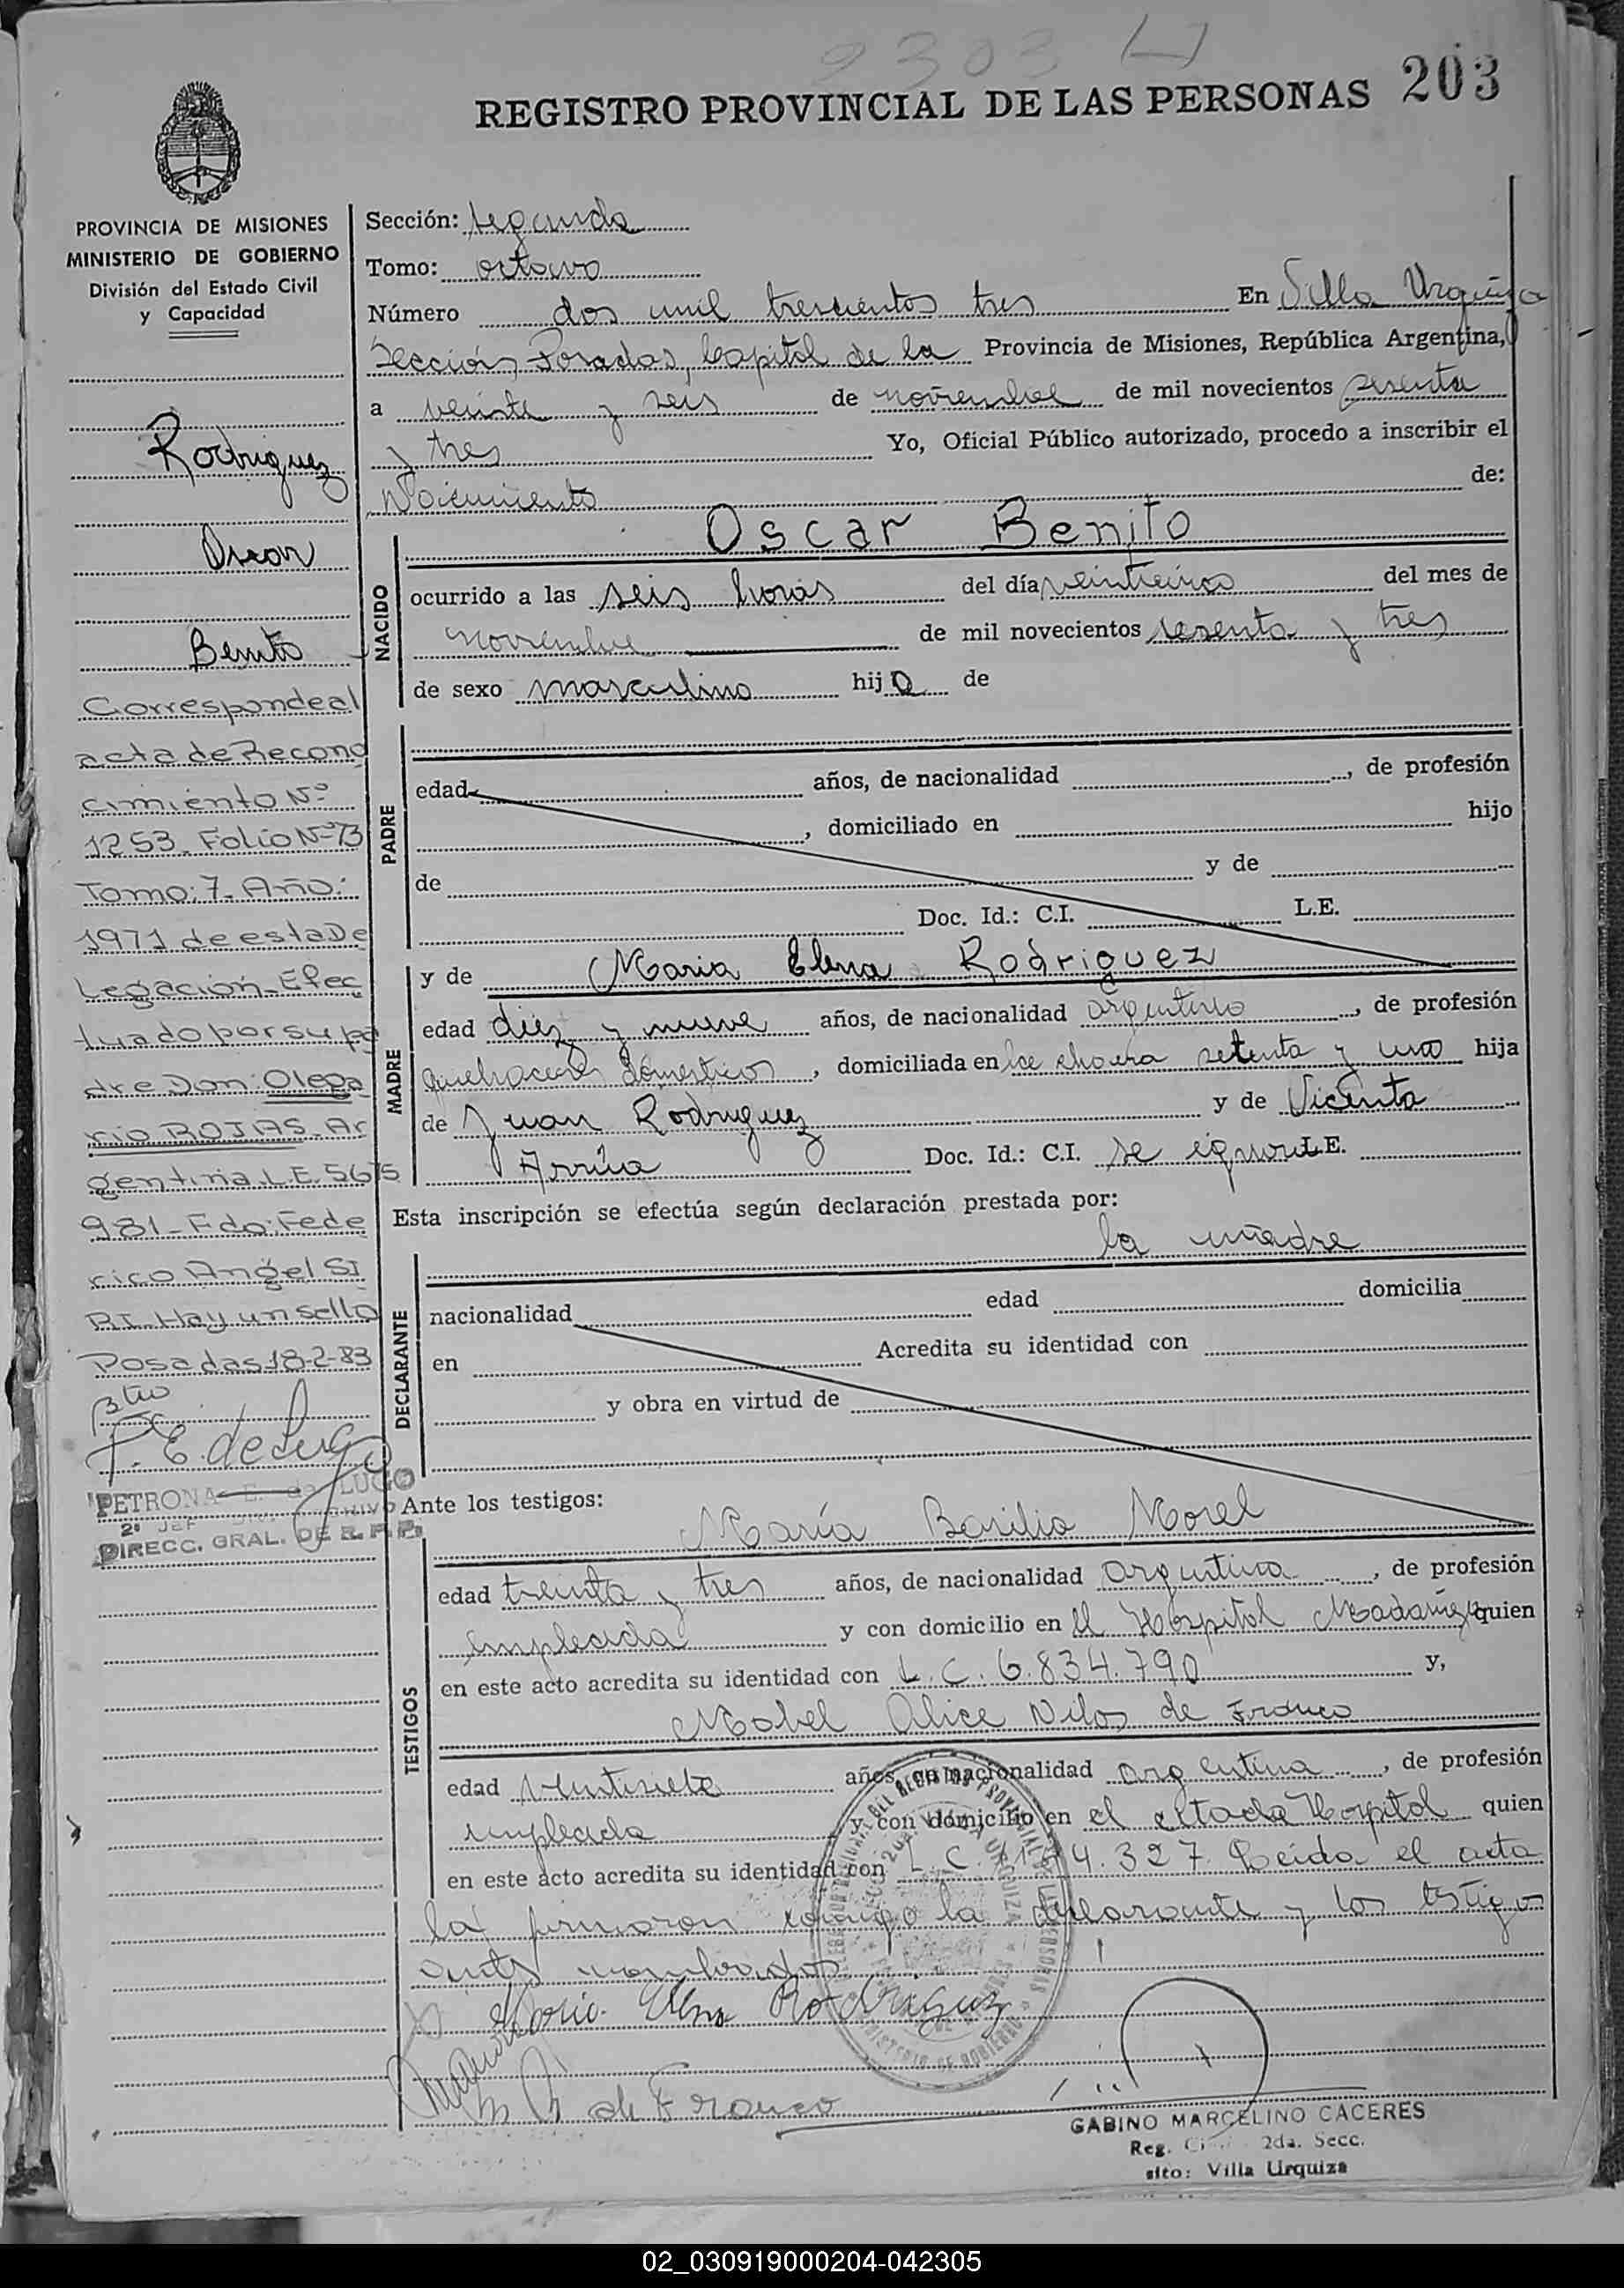 2303
REGISTRO PROVINCIAL DE LAS PERSONAS 203
PROVINCIA DE MISIONES
MINISTERIO DE GOBIERNO
División del Estado Civil
y Capacidad
Rodriguez
Oscar
Benito
Corresponde al
acta de Recono
cimiento Nº
1253. Folio Nº 73
Tomo: 7. Año:
1971 de esta De
legación. Efec
tuado por su pa
dre Don: Olega
rio ROJAS. Ar
gentina. L.E. 5675
981 - Fdo: Fede
rico Angel SI
RI. Hay un sello
Posadas 18-2-83
P. E. de Lugo
PETRONA E. de LUGO
2º JEF
DIRECC. GRAL. DE R. P. P.
Sección: segunda
Tomo: octavo
Número dos mil trescientos tres En Villa Urquiza
Sección, Posadas, Capital de la Provincia de Misiones, República Argentina,
a veinte y seis de noviembre de mil novecientos sesenta
y tres Yo, Oficial Público autorizado, procedo a inscribir el
Nacimiento de:
Oscar Benito
NACIDO
ocurrido a las seis horas del día veinticinco del mes de
noviembre de mil novecientos sesenta y tres
de sexo masculino hijo de
PADRE
edad años, de nacionalidad , de profesión
, domiciliado en hijo
de y de
Doc. Id.: C.I. L.E.
MADRE
y de Maria Elena Rodriguez
edad diez y nueve años, de nacionalidad argentina , de profesión
quehaceres domésticos , domiciliada en la chacra setenta y uno hija
de Juan Rodriguez y de Vicenta
Doc. Id.: C.I. se ignora L.E.
Esta inscripción se efectúa según declaración prestada por:
la madre
DECLARANTE
nacionalidad edad domicilia
en Acredita su identidad con
y obra en virtud de
Ante los testigos:
María Basilia Morel
TESTIGOS
edad treinta y tres años, de nacionalidad argentina , de profesión
empleada y con domicilio en el Hospital Madariaga quien
en este acto acredita su identidad con L.C. 6.834.790 y,
Mabel Alice de Franco
edad veintisiete años, de nacionalidad argentina , de profesión
empleada y con domicilio en el citado Hospital quien
en este acto acredita su identidad con L.C. 4.327. Leida el acta
la firmaron conmigo la declarante y los testigos
antes nombrados
Maria Elena Rodriguez
de Franco
GABINO MARCELINO CACERES
Reg. 2da. Secc.
sito: Villa Urquiza
02_030919000204-042305